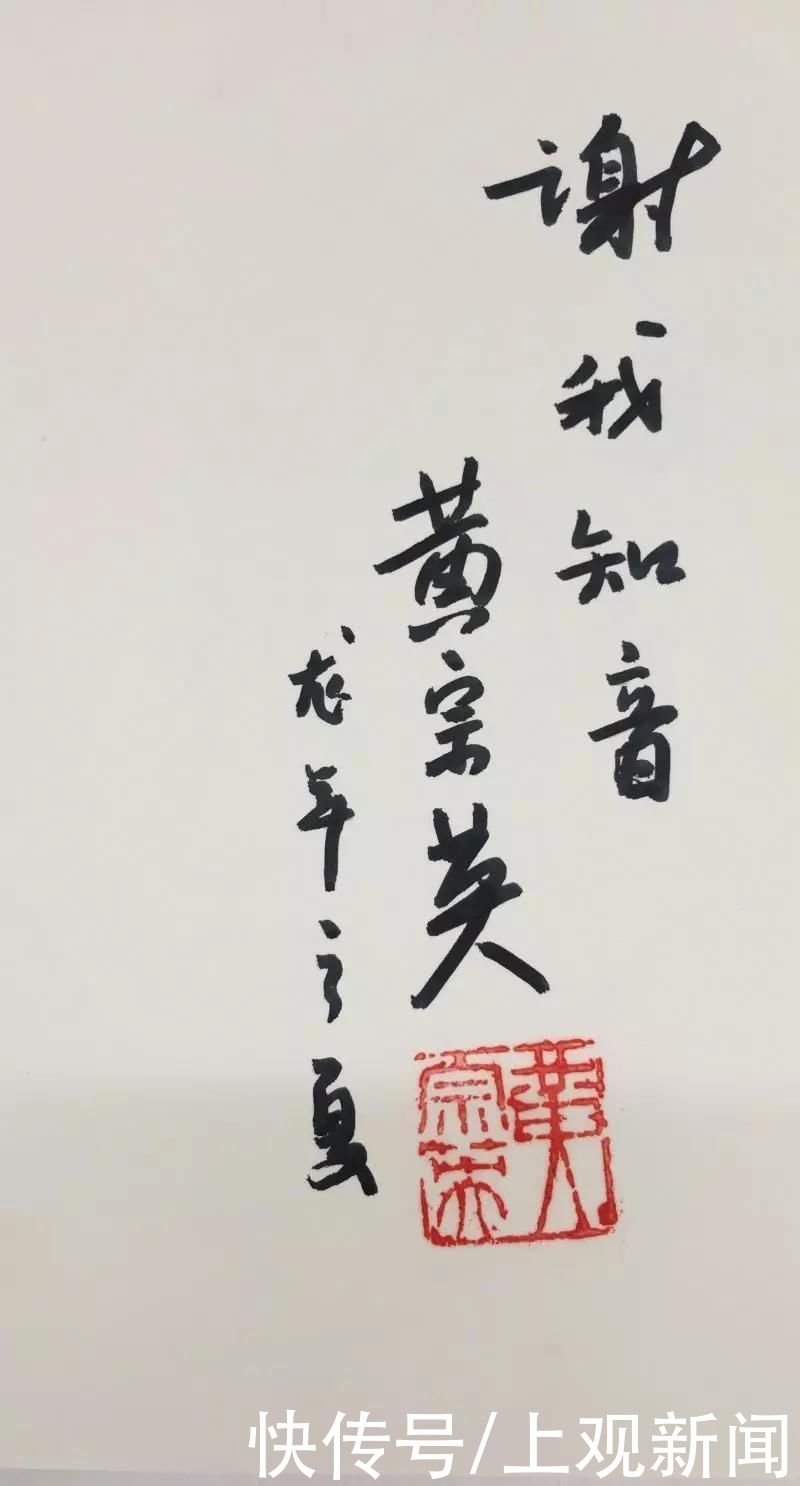 谢我知音
黄宗英
龙年之夏
黄宗英
快传号/上观新闻